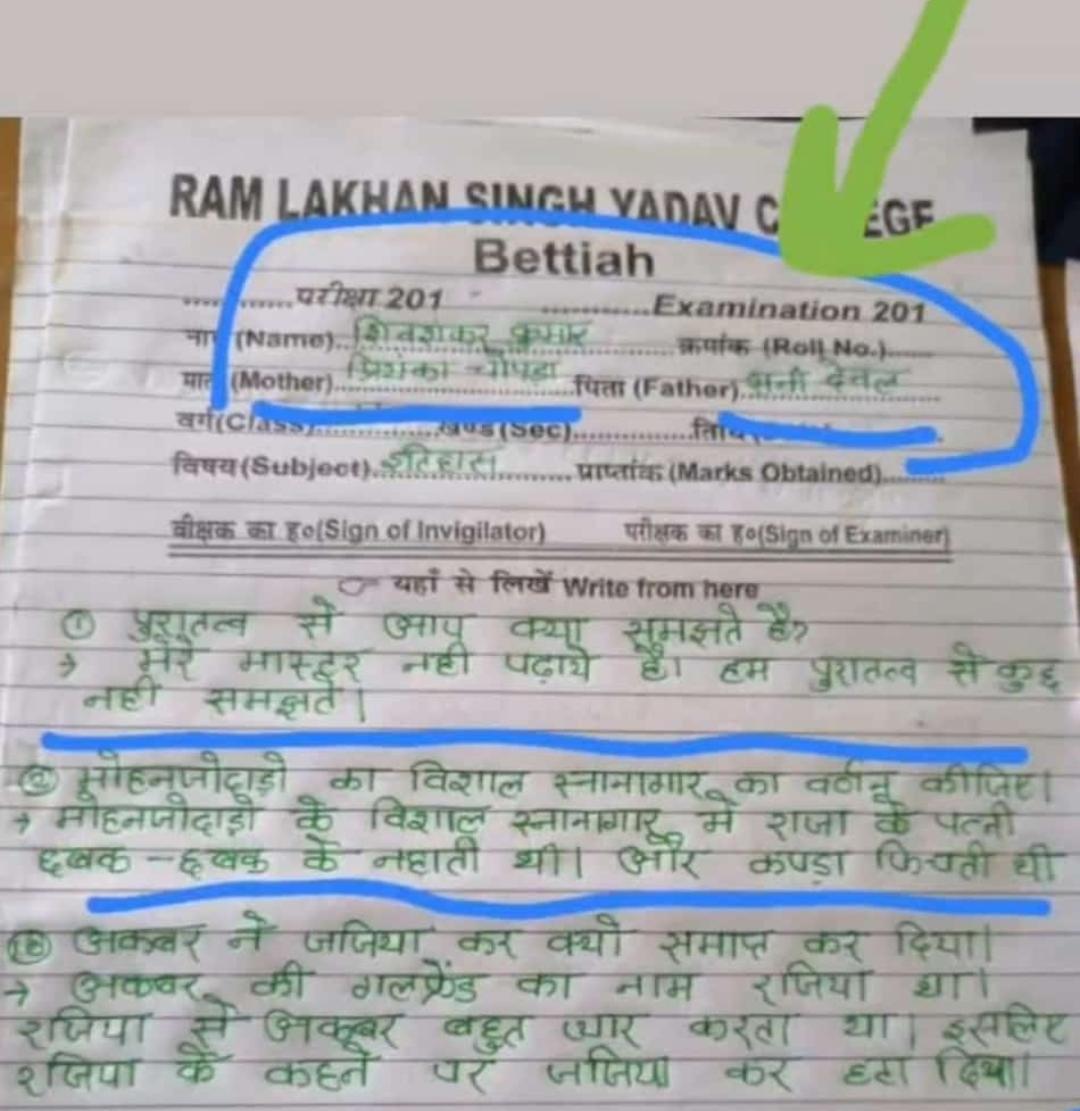 RAM LAKHAN SINGH YADAV C EGE
Bettiah
............परीक्षा 201 ............Examination 201
(Name)..शिवशंकर कुमार............ क्रमांक (Roll No.)......
(Mother)..प्रियंका चोपड़ा............ पिता (Father).सनी देवल......
वर्ग(Class)............खण्ड(Sec)...............
विषय(Subject).इतिहास............ प्राप्तांक (Marks Obtained)........
वीक्षक का ह०(Sign of Invigilator) परीक्षक का ह०(Sign of Examiner)
यहाँ से लिखें Write from here
① पुरातत्व से आप क्या समझते है?
→ मेरे मास्टर नही पढ़ाये है। हम पुरातत्व से कुछ
नही समझते।
② मोहनजोदाड़ो का विशाल स्नानागार का वर्णन कीजिए।
→ मोहनजोदाड़ो के विशाल स्नानागार में राजा के पत्नी
छबक - छबक के नहाती थी। और कपड़ा फिचती थी
अकबर ने जजिया कर क्यों समाप्त कर दिया।
→ अकबर की गलफ्रेंड का नाम रजिया था।
रजिया से अकबर बहुत प्यार करता था। इसलिए
रजिया के कहने पर जजिया कर हटा दिया।